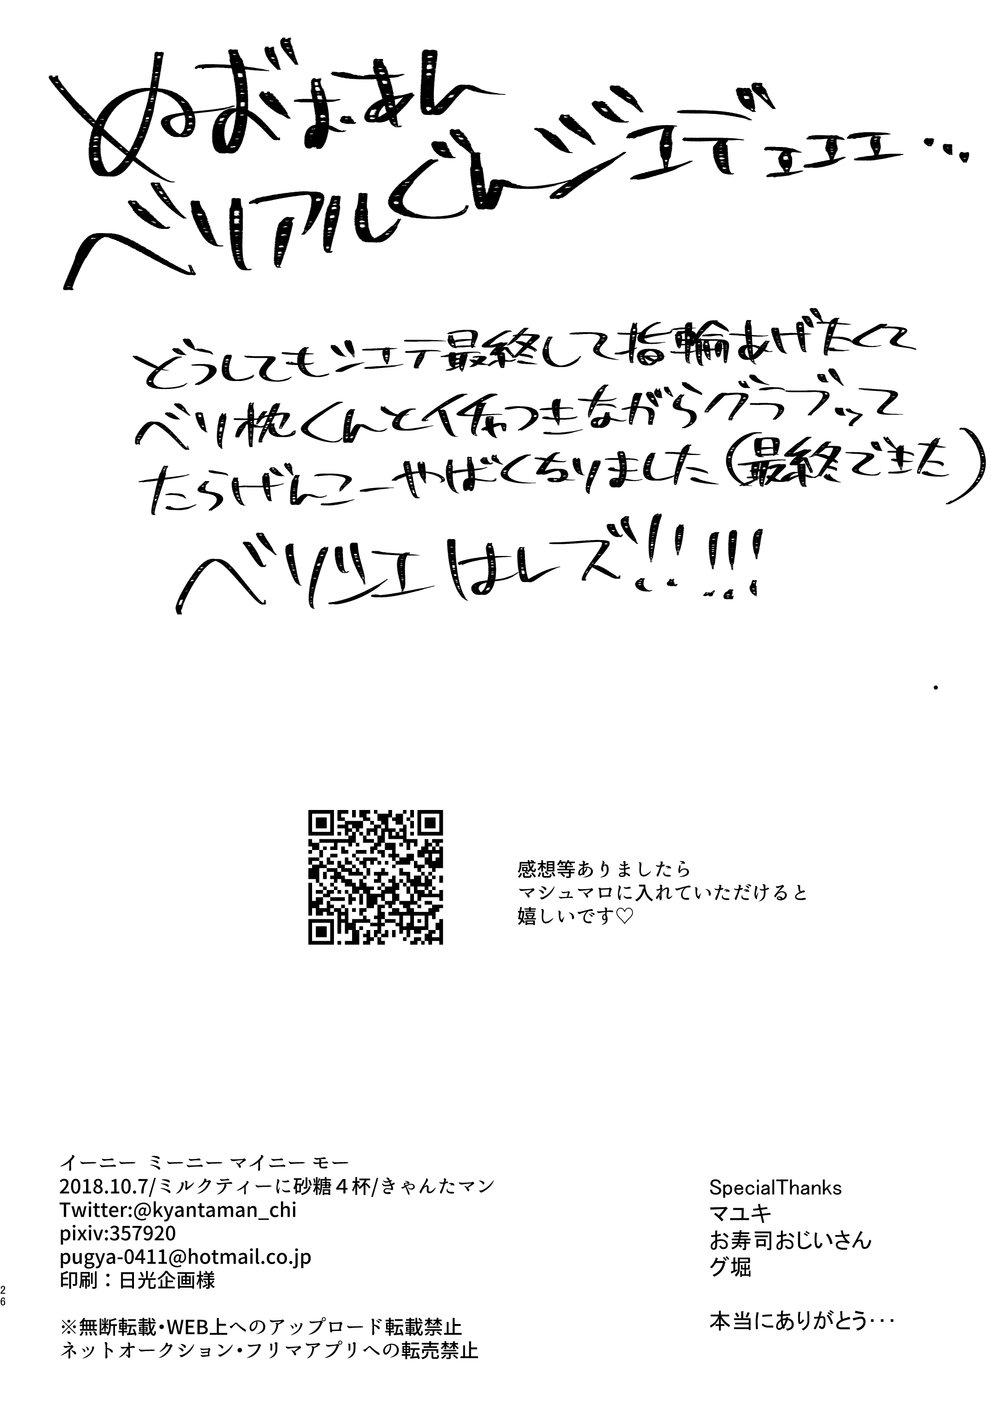 ぬ゛お゛ま゛あん
ベリアルぐんジエデェエエ…
どうしてもジエテ最終して指輪あげたくて
ベリ枕くんとイチャつきながらグラブッて
たらげんこーやばくなりました(最終できた)
ベリジエはレズ!!!!!
感想等ありましたら
マシュマロに入れていただけると
嬉しいです♡
イーニー ミーニー マイニー モー
2018.10.7/ミルクティーに砂糖4杯/きゃんたマン
Twitter:@kyantaman_chi
pixiv:357920
pugya-0411@hotmail.co.jp
印刷：日光企画様
※無断転載・WEB上へのアップロード転載禁止
ネットオークション・フリマアプリへの転売禁止
SpecialThanks
マユキ
お寿司おじいさん
グ堀
本当にありがとう･･･
26